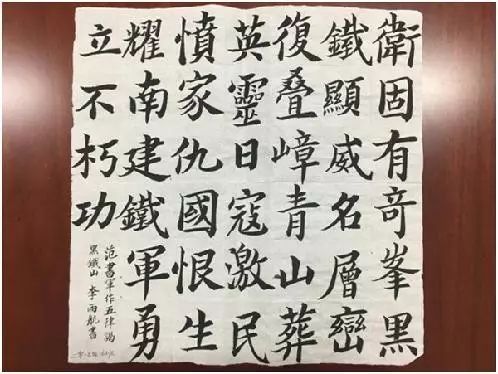 衛固有竒峯黑
鐵顯威名層巒
復叠嶂青山葬
英靈日寇激民
憤家仇國恨生
耀南建鐵軍勇
立不朽功
范書軍作五律謁
黑鐵山 李雨航書